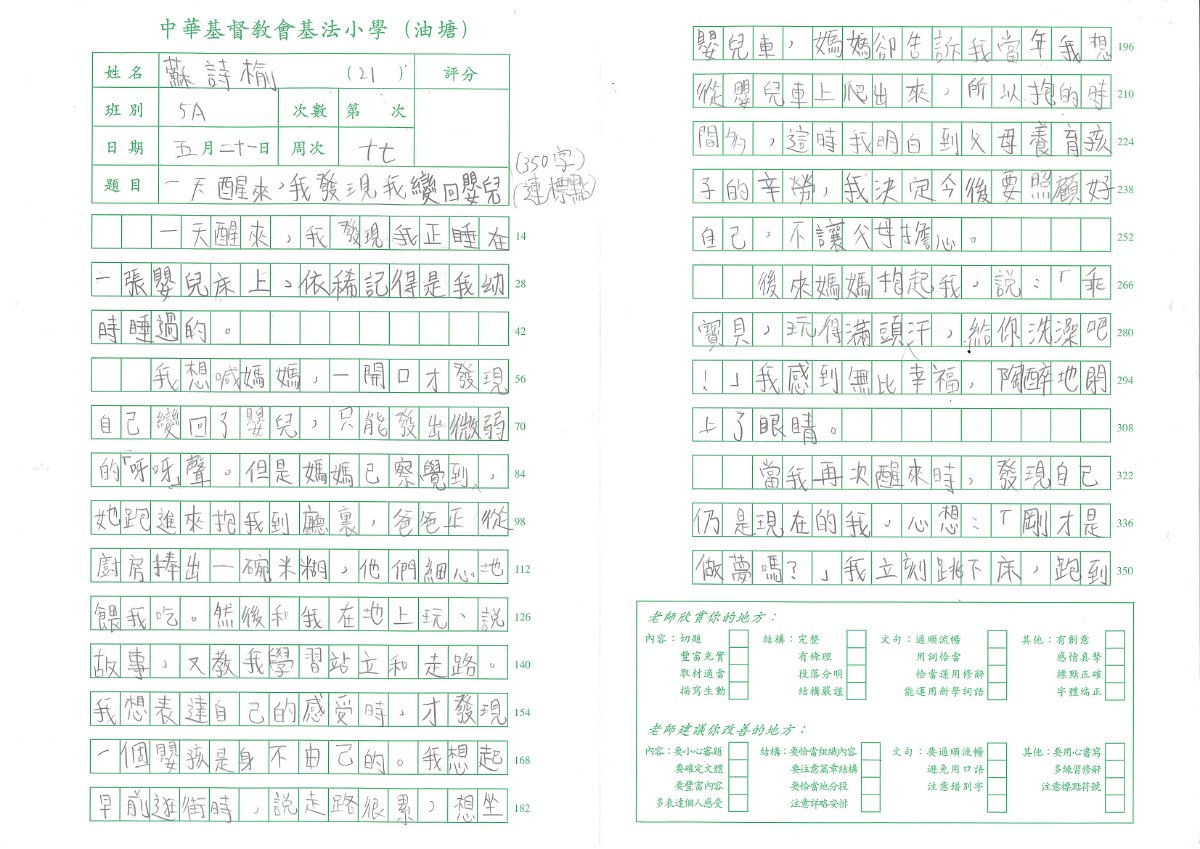 中華基督教會基法小學（油塘）
姓名 蘇詩榆 （21） 評分
班別 5A 次數 第 次
日期 五月二十一日 周次 十七
(350字)
題目 一天醒來，我發現我變回嬰兒
(連標點)
一天醒來，我發現我正睡在 14
一張嬰兒床上，依稀記得是我幼 28
時睡過的。 42
我想喊媽媽，一開口才發現 56
自己變回了嬰兒，只能發出微弱 70
的「呀呀」聲。但是媽媽已察覺到， 84
她跑進來抱我到廳裏，爸爸正從 98
廚房捧出一碗米糊，他們細心地 112
餵我吃。然後和我在地上玩、說 126
故事，又教我學習站立和走路。 140
我想表達自己的感受時，才發現 154
一個嬰孩是身不由己的。我想起 168
早前逛街時，說走路很累，想坐 182
嬰兒車，媽媽卻告訴我當年我想 196
從嬰兒車上爬出來，所以抱的時 210
間多，這時我明白到父母養育孩 224
子的辛勞，我決定今後要照顧好 238
自己，不讓父母擔心。 252
後來媽媽抱起我，說：「乖 266
寶貝，玩得滿頭汗，給你洗澡吧 280
！」我感到無比幸福，陶醉地閉 294
上了眼睛。 308
當我再次醒來時，發現自己 322
仍是現在的我，心想：「剛才是 336
做夢嗎？」我立刻跳下床，跑到 350
老師欣賞你的地方：
內容：切題 結構：完整 文句：通順流暢 其他：有創意
豐富充實 有條理 用詞恰當 感情真摯
取材適當 段落分明 恰當運用修辭 標點正確
描寫生動 結構嚴謹 能運用新學詞語 字體端正
老師建議你改善的地方：
內容：要小心審題 結構：要恰當組織內容 文句：要通順流暢 其他：要用心書寫
要確定文體 要注意篇章結構 避免用口語 多練習修辭
要豐富內容 要恰當地分段 注意錯別字 注意標點符號
多表達個人感受 注意詳略安排